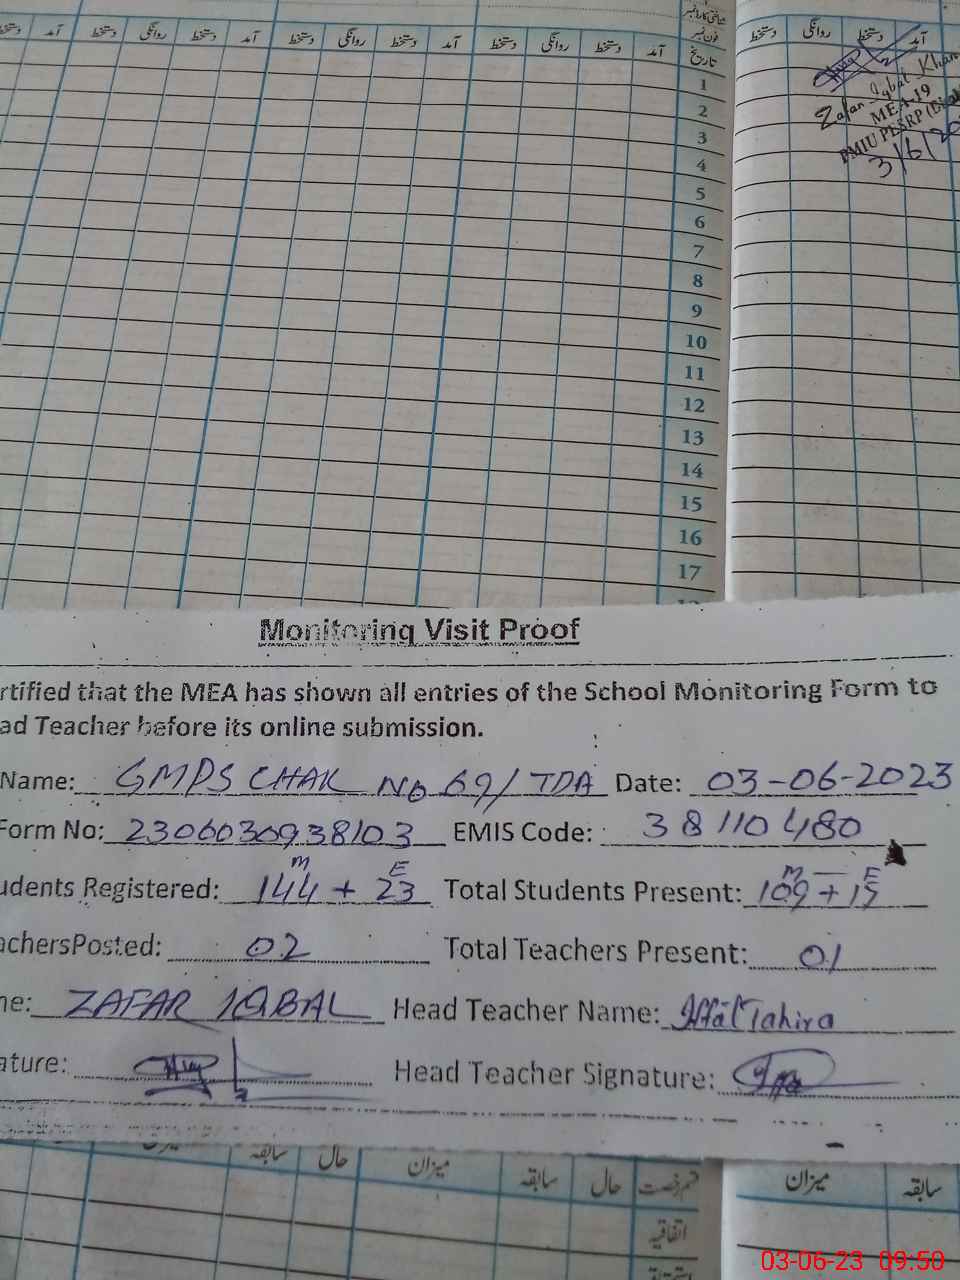 شناختی کارڈ نمبر
فون نمبر
دستخط آمد روانگی دستخط آمد دستخط روانگی دستخط آمد دستخط روانگی دستخط آمد تاریخ
دستخط روانگی دستخط آمد
1
2
3
4
5
6
7
8
9
10
11
12
13
14
15
16
17
Zafar Iqbal Khan
MEA-19
PMIU PESRP
3/6/20
Monitoring Visit Proof
rtified that the MEA has shown all entries of the School Monitoring Form to
ad Teacher before its online submission.
Name: GMPS CHAK NO 69/TDA Date: 03-06-2023
Form No: 2306030938103 EMIS Code: 38110480
M E M E
udents Registered: 144 + 23 Total Students Present: 109 + 15
achersPosted: 02 Total Teachers Present: 01
ne: ZAFAR IQBAL Head Teacher Name: Iffat Tahira
ature: Head Teacher Signature:
میزان سابقہ حال میزان سابقہ حال قسم رخصت
میزان سابقہ
اتفاقیہ
03-06-23 09:50